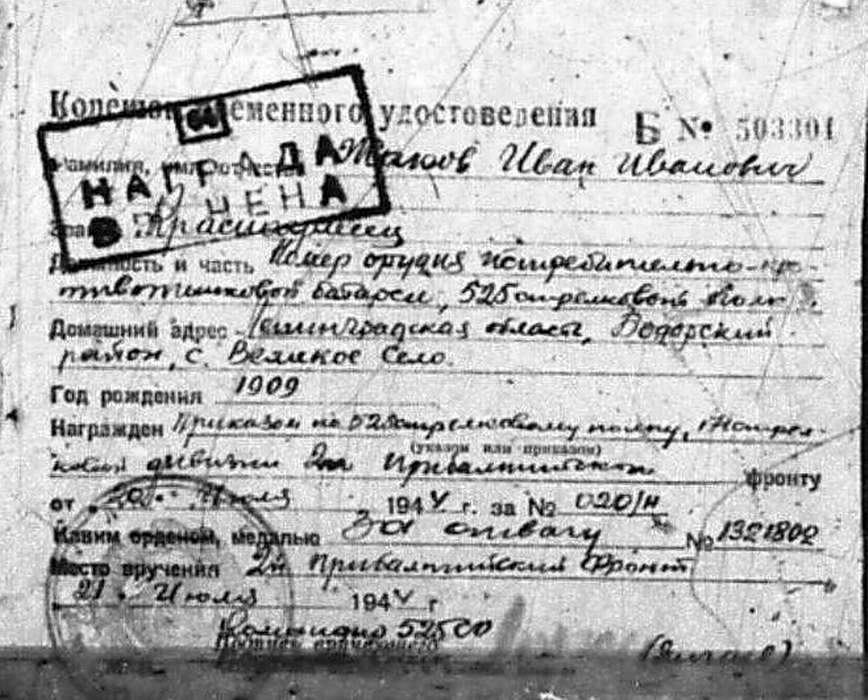 Корешок временного удостоверения Б № 503301
64
НАГРАДА
ЦЕНА
Фамилия, имя, отчество Иван Иванович
Красноармеец
Должность и часть Номер орудия истребительно-про-
тивотанковой батареи, 525 стрелковой
Домашний адрес Ленинградская область,
район, с. Великое Село.
Год рождения 1909
Награжден Приказом по 525 стрелковому полку,
(указом или приказом)
дивизии 2му Прибалтийскому фронту
от 20 Июля 1944 г. за № 020/н
Каким орденом, медалью За отвагу № 1321802
Место вручения 2й Прибалтийский Фронт
21 Июля 1944 г
525